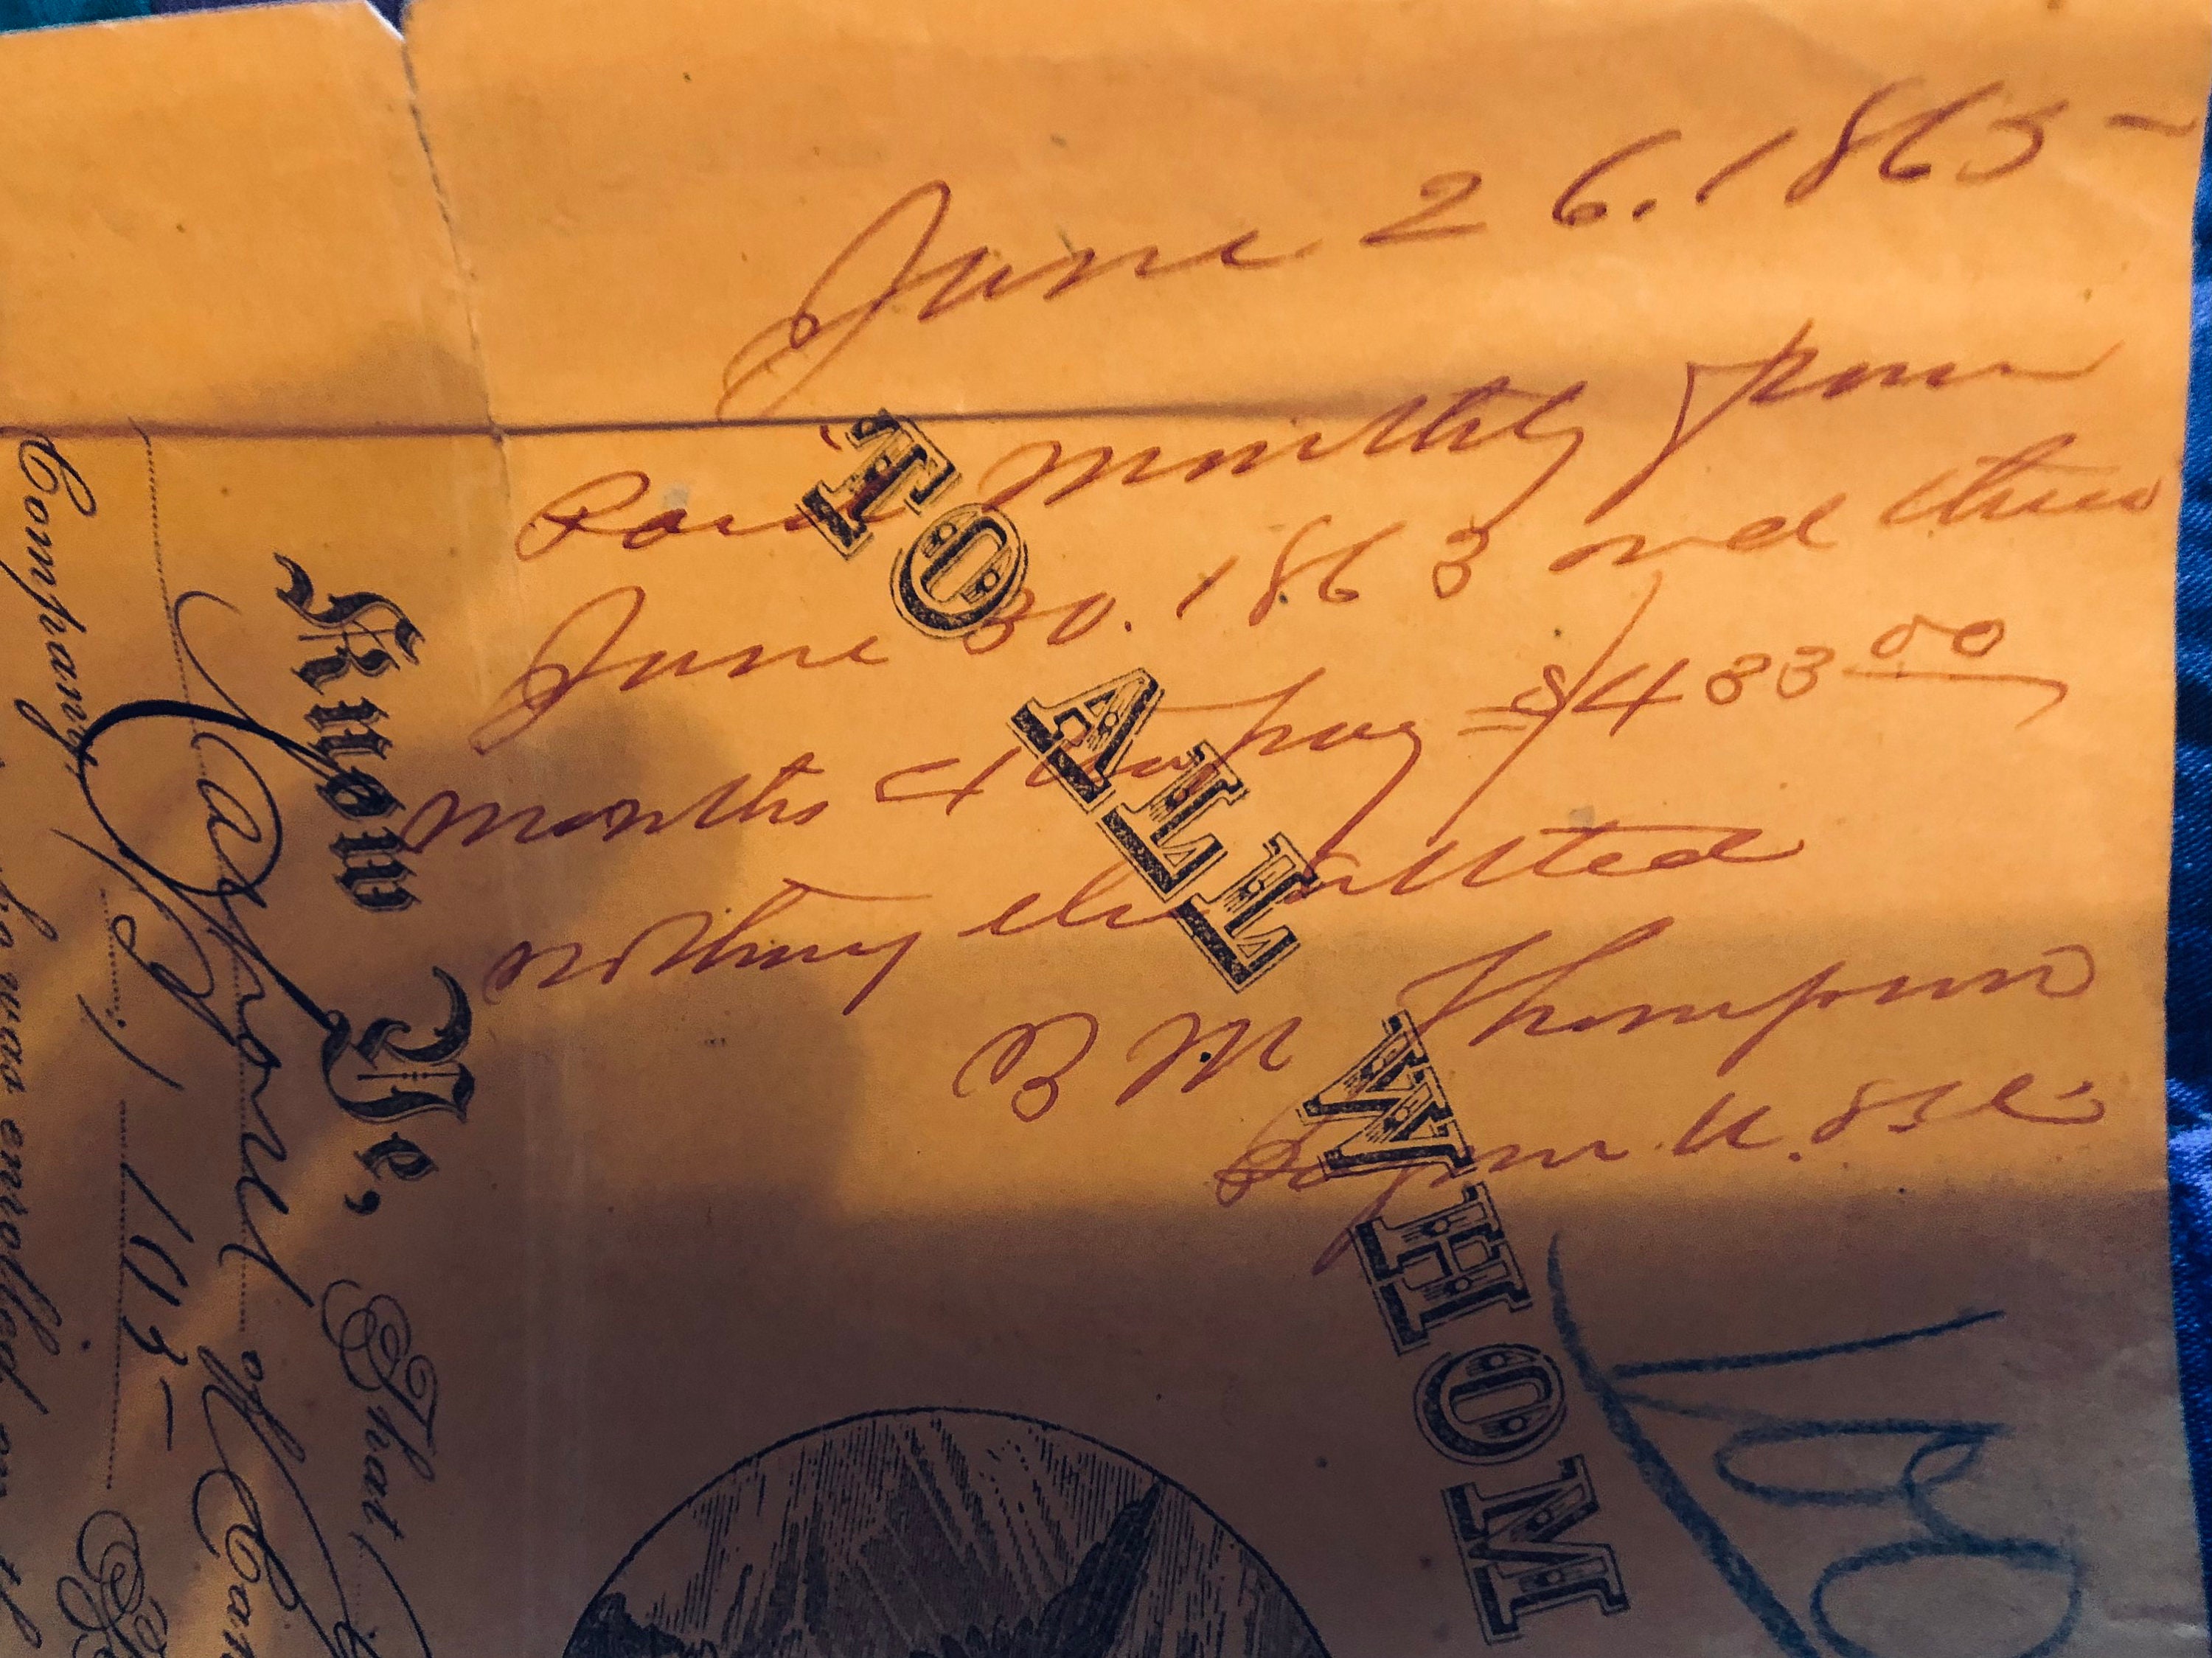 June 26. 1865 –
Paid monthly from
June 30. 1863 and three
months pay = $483 00
nothing else allotted
B M Thompson
Paymr U.S.A.
TO ALL WHOM
Know Ye, That
Corporal of Cap
Company, ( ), 103 –
who was enrolled on